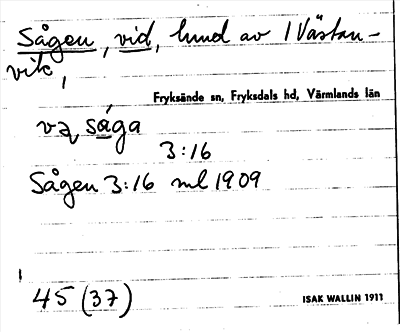 Sågen, vid, hmd av 1 Västan-
vik,
Fryksände sn, Fryksdals hd, Värmlands län
vz såga
3:16
Sågen 3:16 ml 1909
45 (37)
ISAK WALLIN 1911